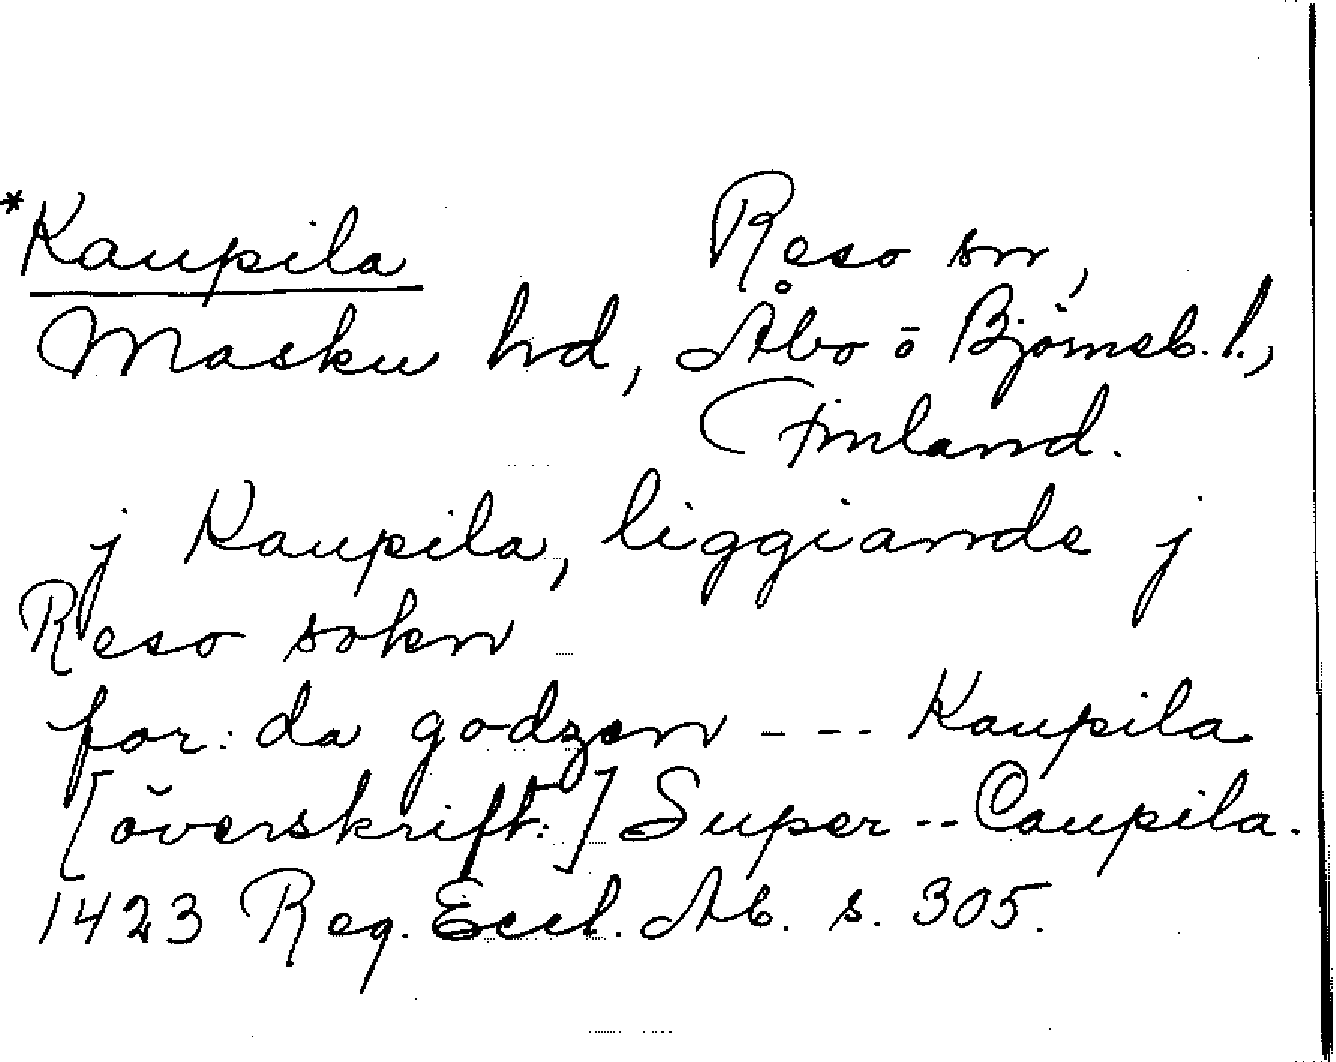 *Kaupila Reso sn,
Masku hd, Åbo o Björneb. l.,
Finland.
j Kaupila, liggiande j
Reso sokn
for: da godzen --- Kaupila
[överskrift:] Super -- Caupila.
1423 Reg. Eccl. Ab. s. 305.